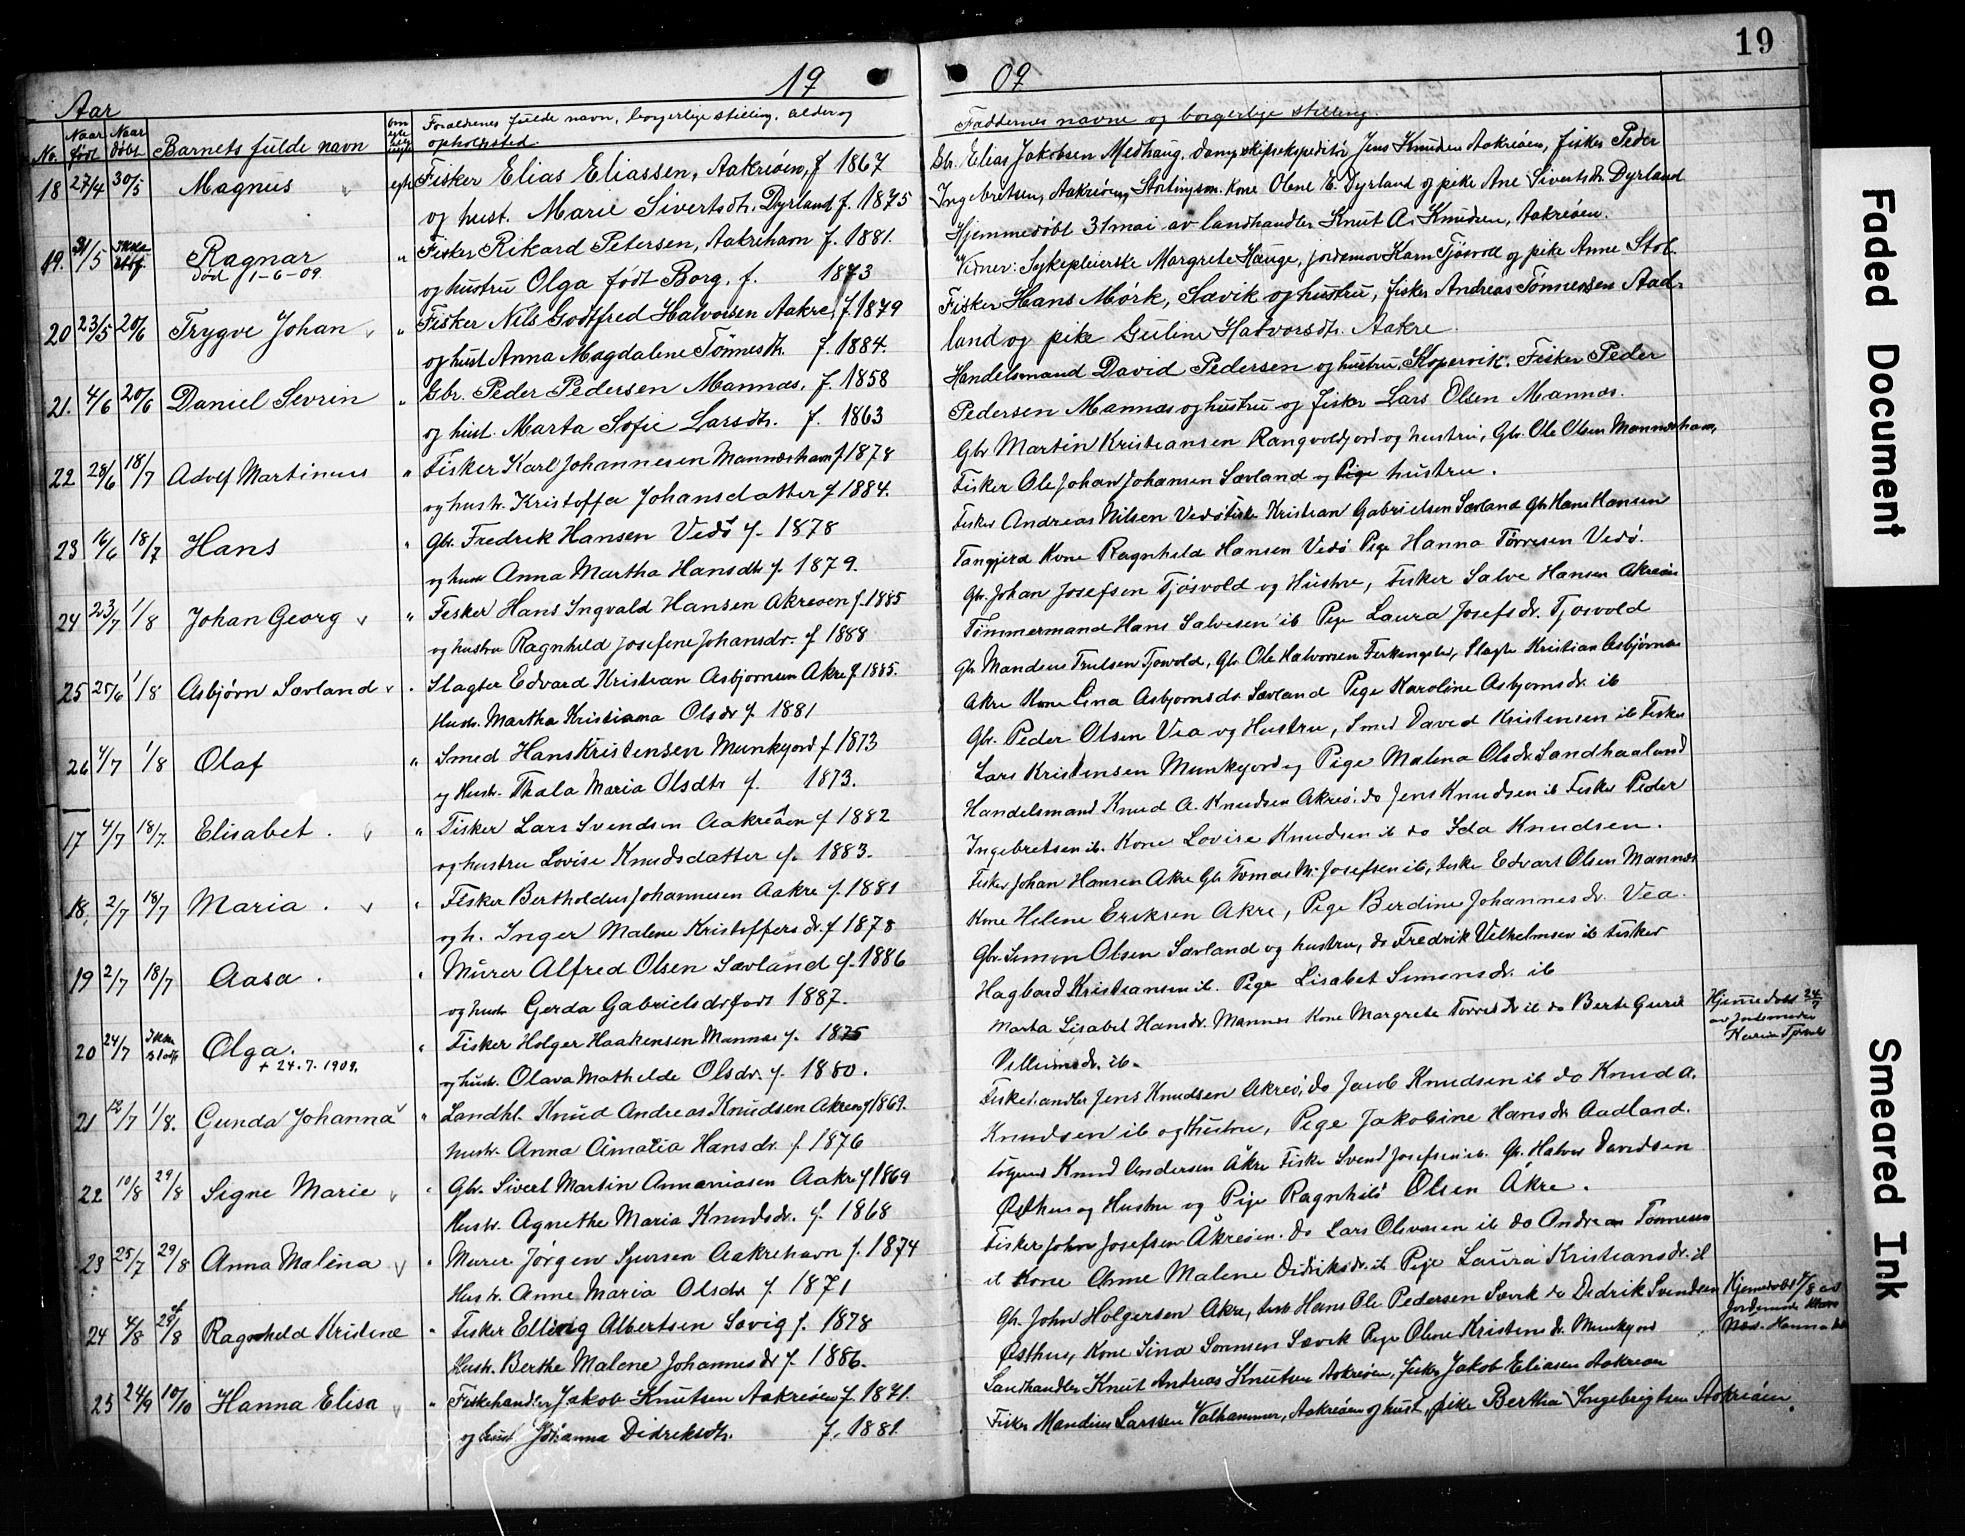 19
19 09
Aar
No. Naar født Naar døbt Barnets fulde navn Forældrenes fulde navn, borgerlige stilling, alder og opholdssted. Faddernes navne og borgerlige stilling.
18 27/4 30/5 Magnus egte Fisker Elias Eliassen, Aakreøen, f 1867 Gbr. Elias Jakobsen Medhaug, dampskipsekspeditør Jens Knudsen Aakreøen, fisker Peder
og hust. Marie Sivertsdtr. Dyrland f. 1875 Ingebretsen, Aakreøen, Stortingsm. kone Olene E. Dyrland og pike Ane Sivertsdtr. Dyrland
19. 31/5 Ragnar " Fisker Rikard Petersen, Aakrehavn f. 1881. Hjemmedøbt 31 mai av landhandler Knut A. Knudsen, Aakreøen.
død 1-6-09. og hustru Olga født Borg. f. 1873 Vidner: Sykepleierske Margrete Hauge, jordemor Karn Tjøsvoll og pike Anne Stol.
20 23/5 20/6 Trygve Johan " Fisker Nils Godtfred Halvorsen Aakre, f. 1879 Fisker Hans Mørk, Sævik og hustru, fisker Andreas Tønnesen Aad-
og hust Anna Magdalene Tønnesdtr. f. 1884. land og pike Guline Halvorsdtr. Aakre.
21. 4/6 20/6 Daniel Sevrin " Gbr. Peder Pedersen Mannæs, f. 1858 Handelsmand David Pedersen og hustru, Kopervik. Fisker Peder
og hust. Marta Sofie Larsdtr. f. 1863 Pedersen Mannæs og hustru og fisker Lars Olsen Mannæs.
22 28/6 18/7 Adolf Martinius " Fisker Karl Johannesen Mannæshavn f 1878 Gbr Martin Kristiansen Rangvoldjord og hustru, Gbr. Ole Olsen Mannæshavn,
og hustr. Kristoffa Johansdatter f 1884. Fisker Ole Johan Johansen Sævland og Pige hustru.
23 16/6 18/7 Hans " Gbr. Fredrik Hansen Vedø f. 1878 Fisker Andreas Nilsen Vedø fisker Kristian Gabrielsen Sævland Gbr Hans Hansen
og hustr Anna Martha Hansdtr f. 1879. Tangjerd Kone Ragnhild Hansen Vedø Pige Hanna Tørresen Vedø.
24 23/7 1/8 Johan Georg " Fisker Hans Ingvald Hansen Akreøen f. 1885 Gbr. Johan Josefsen Tjøsvold og Hustru, Fisker Salve Hansen Akreøen
og hustru Ragnhild Josefine Johansdr. f 1888 Tømmermand Hans Salvesen ib Pige Laura Josefsdr. Tjøsvold
25 25/6 1/8 Asbjørn Sævland Slagter Edvard Kristian Asbjørnsen Akre f 1885. Gbr Mandius Trulsen Tjøsvold, Gbr Ole Halvorsen Ferkingstad, Slagter Kristian Asbjørnsen
Hustr. Martha Kristiana Olsdr f. 1881 Akre Kone Lina Asbjørnsdr Sævland Pige Karoline Asbjørnsdr. ib
26 4/7 1/8 Olaf " Smed Hans Kristensen Munkejord f 1873 Gbr. Peder Olsen Vea og Hustru, Smed David Kristensen ib Fisker
og Hustr. Thala Maria Olsdtr f. 1873. Lars Kristensen Munkejord og Pige Malena Olsdr. Sandhaaland
17 4/7 18/7. Elisabet. " Fisker Lars Svendsen Aakreøen f 1882 Handelsmand Knud A. Knudsen Akreø. do Jens Knudsen ib Fisker Peder
og hustru Lovise Knudsdatter f. 1883. Ingebretsen ib. Kone Lovise Knudsen ib do Ida Knudsen.
18. 2/7 18/7 Maria. Fisker Bertholdus Johannesen Aakre f. 1881 Fisker Johan Hansen Akre Gbr Tomas M. Josefsen ib, fisker Edvart Olsen Mannæs
og h. Inger Malene Kristoffersdr. f 1878 Kone Helene Eriksen Akre, Pige Berdine Johannesdr. Vea.
19 2/7 18/7 Aasa. Murer Alfred Olsen Sævland f. 1886 Gbr. Simon Olsen Sævland og hustru, do Fredrik Vilhelmsen ib fisker
og hustr Gerda Gabrielsdr født 1887. Hagbard Kristiansen ib. Pige Lisabet Simonsdr. ib
20 24/7 Olga. Fisker Holger Haakensen Mannæs f. 1875 Marta Lisabet Hansdr. Mannæs Kone Margrete Torresdr ib do Berte Gurie Hjemmedøbt 24/7
+ 24.7.1909. og hustr. Olava Mathilde Olsdr. f. 1880. Villumsdr. ib. av Jordemoder
21 12/7 1/8. Gunda Johanna " Landhl. Knud Andreas Knudsen Akreøen f 1869. Fiskehandler Jens Knudsen Akreø, do Jacob Knudsen ib do Knud A.
hustr. Anna Amalia Hansdr. f. 1876 Knudsen ib og Hustru, Pige Jakobine Hansdr Aadland.
22 10/8 29/8 Signe Marie Gbr. Sivert Martin Annaniasen Aakre f 1869 Knud Andersen Åkre Fisker Svend Josefsen ib. Gbr. Halvor Davidsen
Hustr. Agnethe Maria Knudsdr. f. 1868 Østhus og Hustru og Pige Ragnhild Olsen Åkre.
23 25/7 29/8 Anna Malena Murer Jørgen Sjursen Aakrehavn f. 1874 Fisker John Josefsen Åkreøen. do Lars Olsvasen ib do Andreas Tønnesen
Hustr. Anne Maria Olsdr f 1871 ib Kone Anne Malene Didriksdr. ib Pige Laura Kristiansdr. ib
24 4/8 29/8 Ragnhild Kristine Fisker Elling Albertsen Sævig f. 1878 Gbr. John Holgersen Akre, fisk Hans Ole Pedersen Sævik do Didrik Svendsen Hjemdøbt /8 av
Hustr. Berthe Malene Johannesdr f. 1886. Østhus, Kone Sina Sørensen Sævik Pige Olene Kristensdr. Munkejord Jordemoder
25 24/9 10/10 Hanna Elisa " Fiskehandler Jakob Knutsen Aakreøen f. 1871. Landhandler Knut Andreas Knutsen Aakreøen, fisker Jakob Eliasen Aakreøen
og hust Johanna Didriksdtr. f. 1881. Fisker Mandius Larssen Valhammer, Aakreøen og hust., pike Bertha Ingebrigtsen Aakreøen.
Faded Document
Smeared Ink